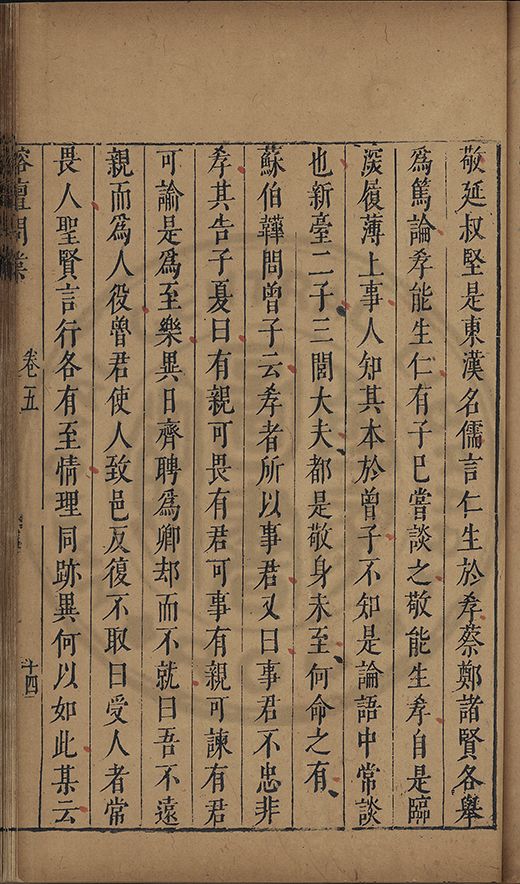 敬延叔堅是東漢名儒言仁生於孝蔡鄭諸賢各舉
為篤論孝能生仁有子已嘗談之敬能生孝自是臨
深履薄上事人知其本於曾子不知是論語中常談
也新臺二子三閭大夫都是敬身未至何命之有
蘇伯韡問曾子云孝者所以事君又曰事君不忠非
孝其告子夏曰有親可畏有君可事有親可諫有君
可諭是為至樂異日齊聘為卿却而不就曰吾不遠
親而為人役魯君使人致邑反復不取曰受人者常
畏人聖賢言行各有至情理同跡異何以如此某云
榕壇問業
卷五
十四